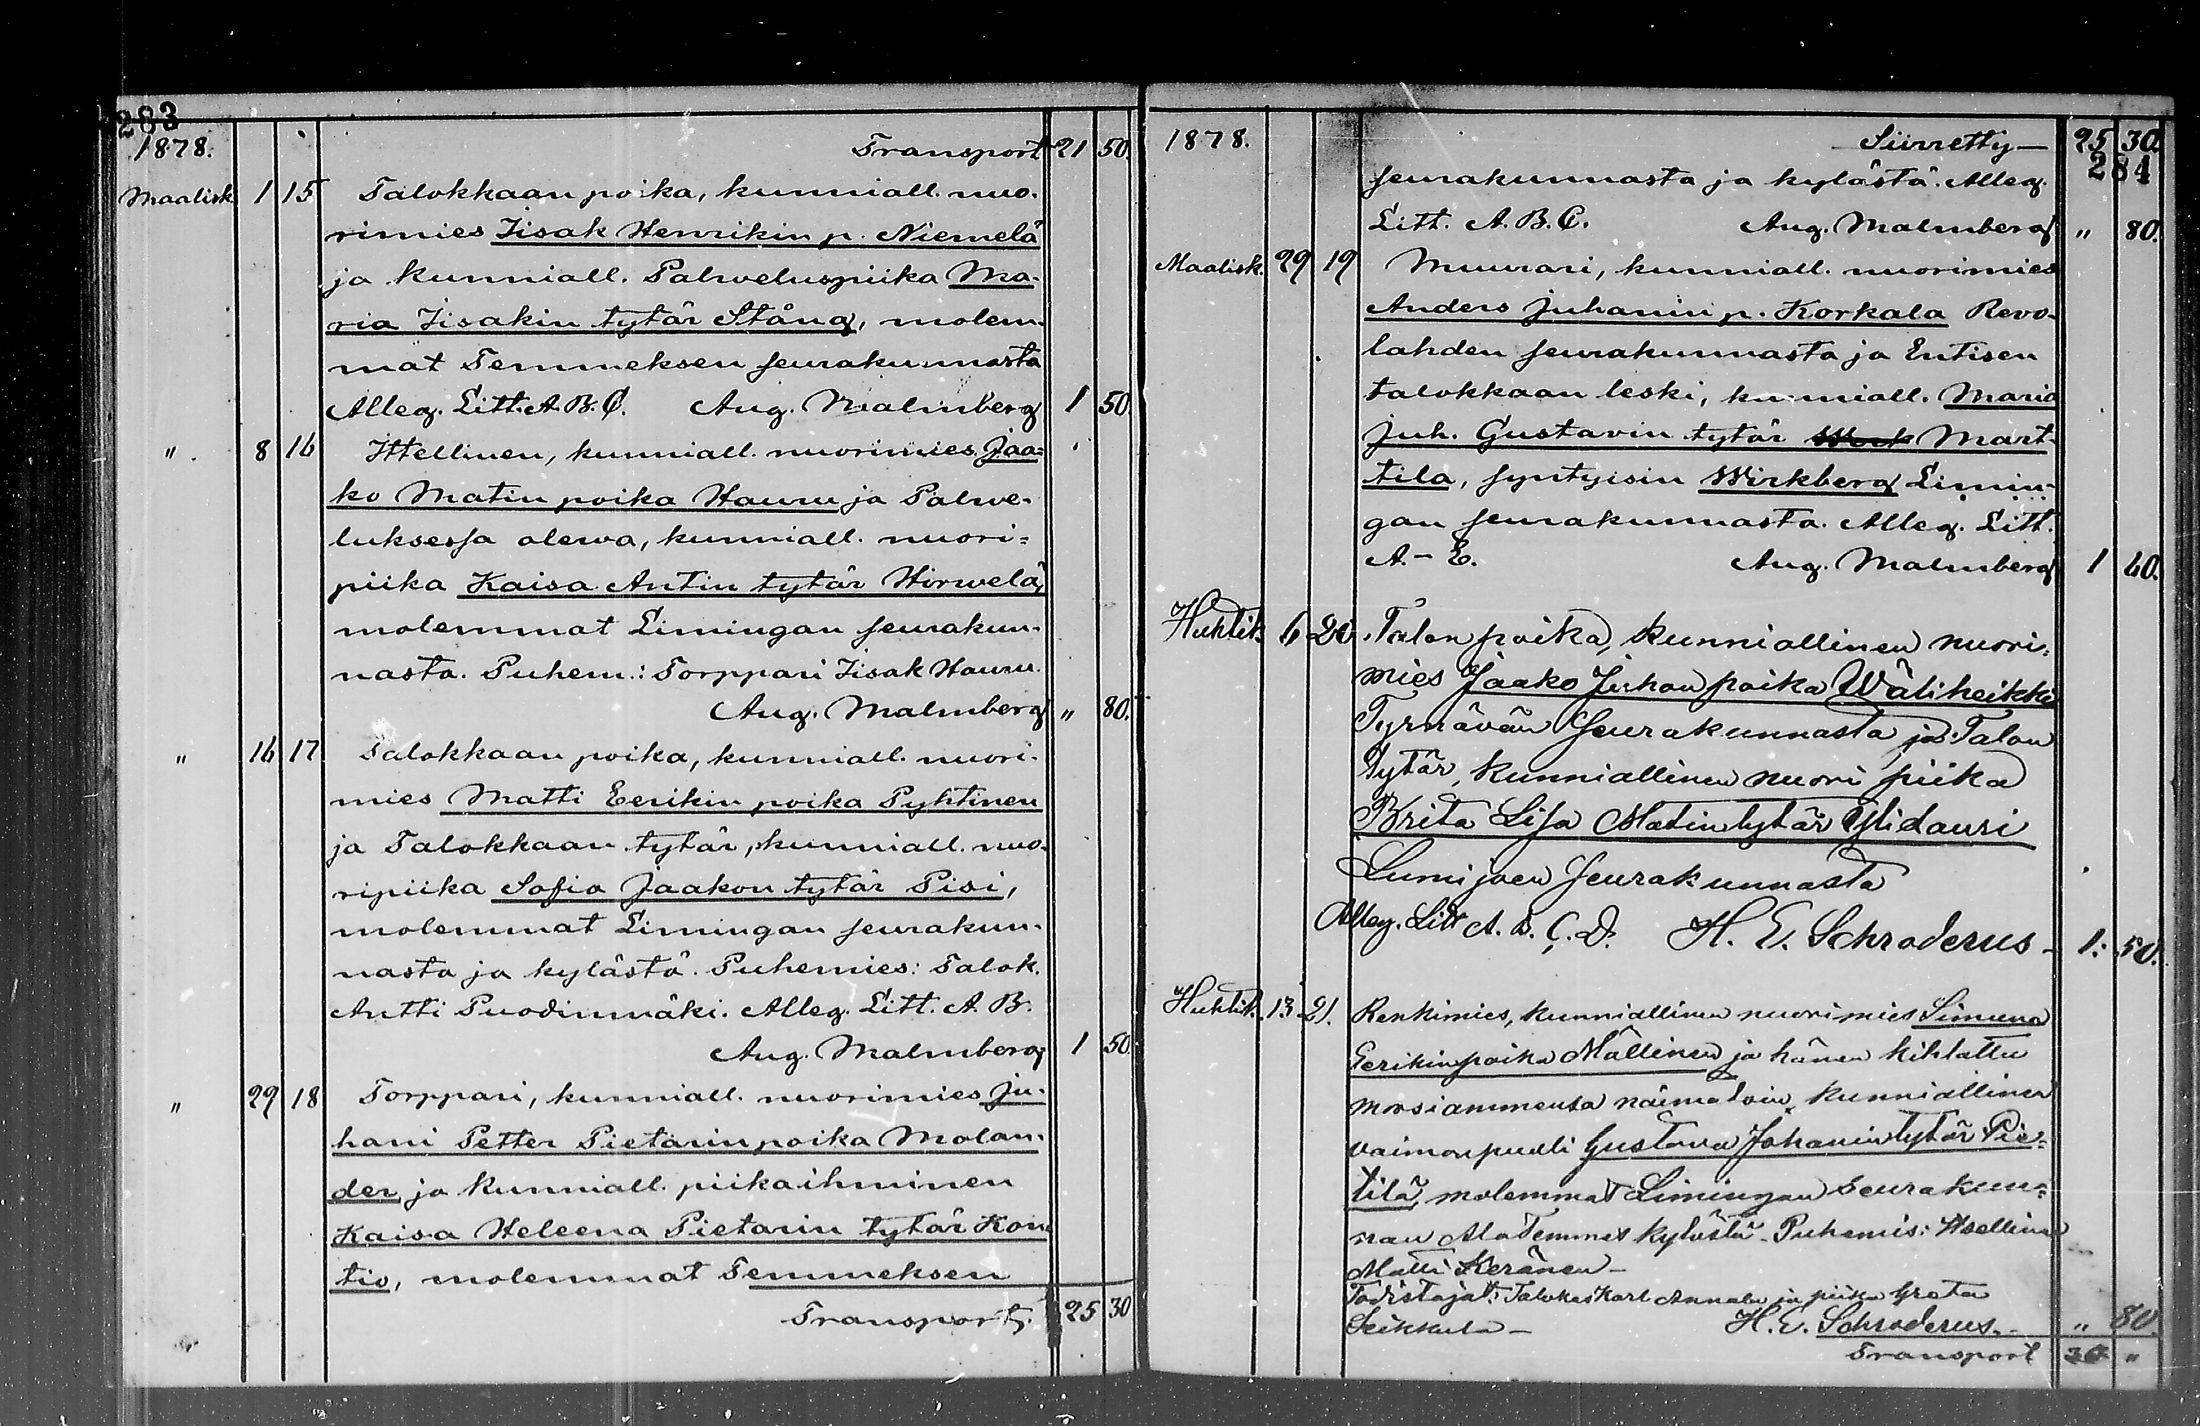 283
1878. Transport 21 50.
Maalisk. 1 15 Talokkaan poika, kunniall. nuo-
rimies Iisak Henrikin p. Niemelä
ja kunniall. Palveluspiika Ma-
ria Iisakin tytär Stång, molem-
mat Temmeksen seurakunnasta
Alleg. Litt. A. B. C. Aug. Malmberg 1 50
" 8 16 Ittellinen, kunniall. nuorimies Jaa-
ko Matin poika Hauru ja Palwe-
luksessa olewa, kunniall. nuori-
piika Kaisa Antin tytär Hirwelä,
molemmat Limingan seurakun-
nasta. Puhem.: Torppari Iisak Hauru.
Aug. Malmberg " 80.
" 16 17 Talokkaan poika, kunniall. nuori-
mies Matti Eerikin poika Pyhtinen
ja Talokkaan tytär, kunniall. nuo-
ripiika Sofia Jaakon tytär Pisi,
molemmat Limingan seurakun-
nasta ja kylästä. Puhemies: Talok.
Antti Puodinmäki. Alleg. Litt. A. B.
Aug. Malmberg 1 50
" 29 18 Torppari, kunniall. nuorimies Ju-
hani Petter Pietarin poika Molan-
der, ja kunniall. piikaihminen
Kaisa Heleena Pietarin tytär Kon-
tio, molemmat Temmeksen
Transport. 25 30
1878. Siirretty 25 30.
284
seurakunnasta ja kylästä. Alleg.
Litt. A. B. C. Aug. Malmberg " 80.
Maalisk. 29 19 Muurari, kunniall. nuorimies
Anders Juhanin p. Korkala Revo-
lahden seurakunnasta ja Entisen
talokkaan leski, kunniall. Maria
Juh. Gustavin tytär Mart-
tila, syntyisin Wirkberg Limin-
gan seurakunnasta. Alleg. Litt.
A.-E. Aug. Malmberg 1 60.
Huhtik. 6 20. Talon poika, kunniallinen nuori-
mies Jaako Juhon poika Wäliheikki
Tyrnävän Seurakunnasta ja Talon
tytär, kunniallinen nuori piika
Brita Lisa Matintytär Ylitauri
Lumijoen Seurakunnasta
Alleg. Litt A. B. C. D. H. E. Schroderus 1. 50.
Huhtik. 13 21. Renkimies, kunniallinen nuorimies Simuna
Eerikinpoika Mällinen ja hänen kihlattu
morsiammensa naimatoin, kunniallinen
vaimonpuoli Gustava Johanintytär Pie-
tilä, molemmat Limingan Seurakun-
nan Ala Temmes kylästä. Puhemies: Itsellinen
Matti Keränen
Todistajat: Talokas Karl Annala ja piika Greta
Seikkula H. E. Schroderus. " 80.
Transport 30 "